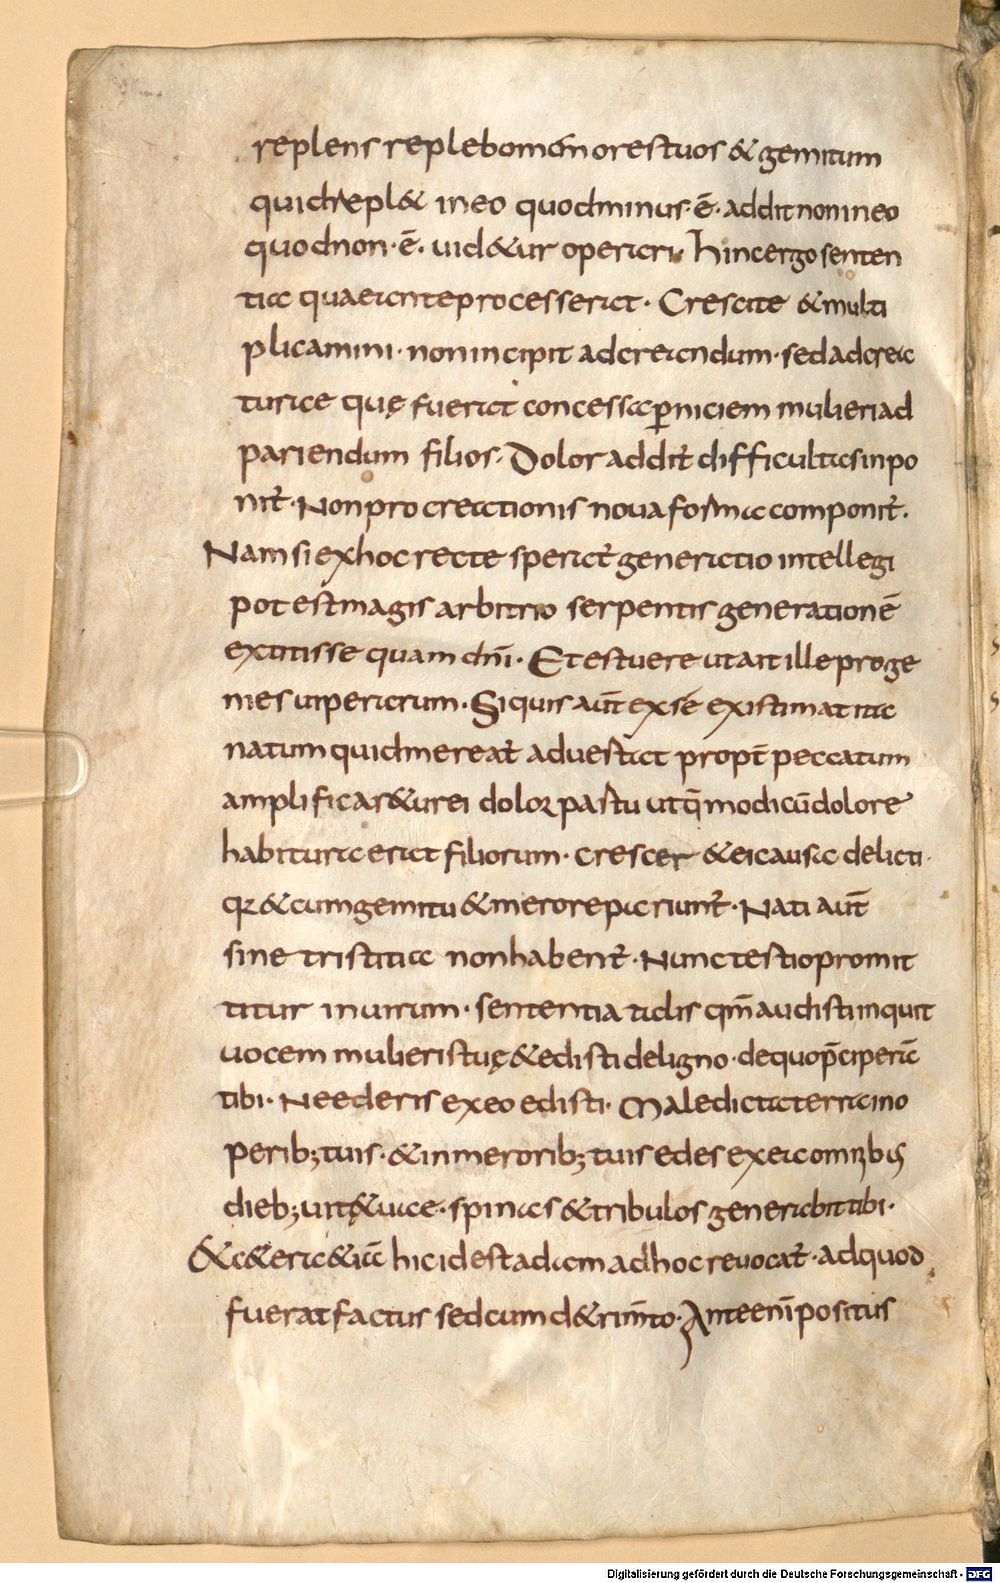 replens replebo merores tuos & gemitum
quid repl& in eo quod minus·ē· addit non in eo
quod non·ē· uid&ur operari· hinc ergo senten
tia quae ante processerat· Crescite & multi
plicamini· non incipit ad creandum· sed ad crea
turae quę fuerat concessa ꝑniciem mulieri ad
pariendum filios· Dolor addit̄ difficultas inpo
nit̄· Non procreationis noua forma componit̄·
Nam si ex hoc recte sperat̄ generatio intellegi
potest magis arbitrio serpentis generationē
extitisse quam dn̄i· Et estuere ut ait ille proge
nies uiperarum· Si quis aūt ex se existimat ita
natum quid mereat̄ aduertat propt̄ peccatum
amplificar&ur ei dolor partu ut q̄ modicū dolore
habitura erat filiorum· crescer & ei causa delicti·
qr & cum gemitu & merore pariunt̄· Nati aūt
sine tristitia non habent̄· Nunc testio promit
titur in uirum· sententia talis qm̄ audisti inquit
uocem mulieris tuę & edisti de ligno· de quo p̄ciperā
tibi· Ne ederis ex eo edisti· Maledicta terra in o
perib; tuis· & in merorib; tuis edes ex ea omnib;
dieb; uitę uae· spinas & tribulos generabit tibi·
&c&era & iā hic id est adam ad hoc reuocat̄· ad quod
fuerat factus sed cum d&rim̄to· Ante enī positus
Digitalisierung gefördert durch die Deutsche Forschungsgemeinschaft - DFG